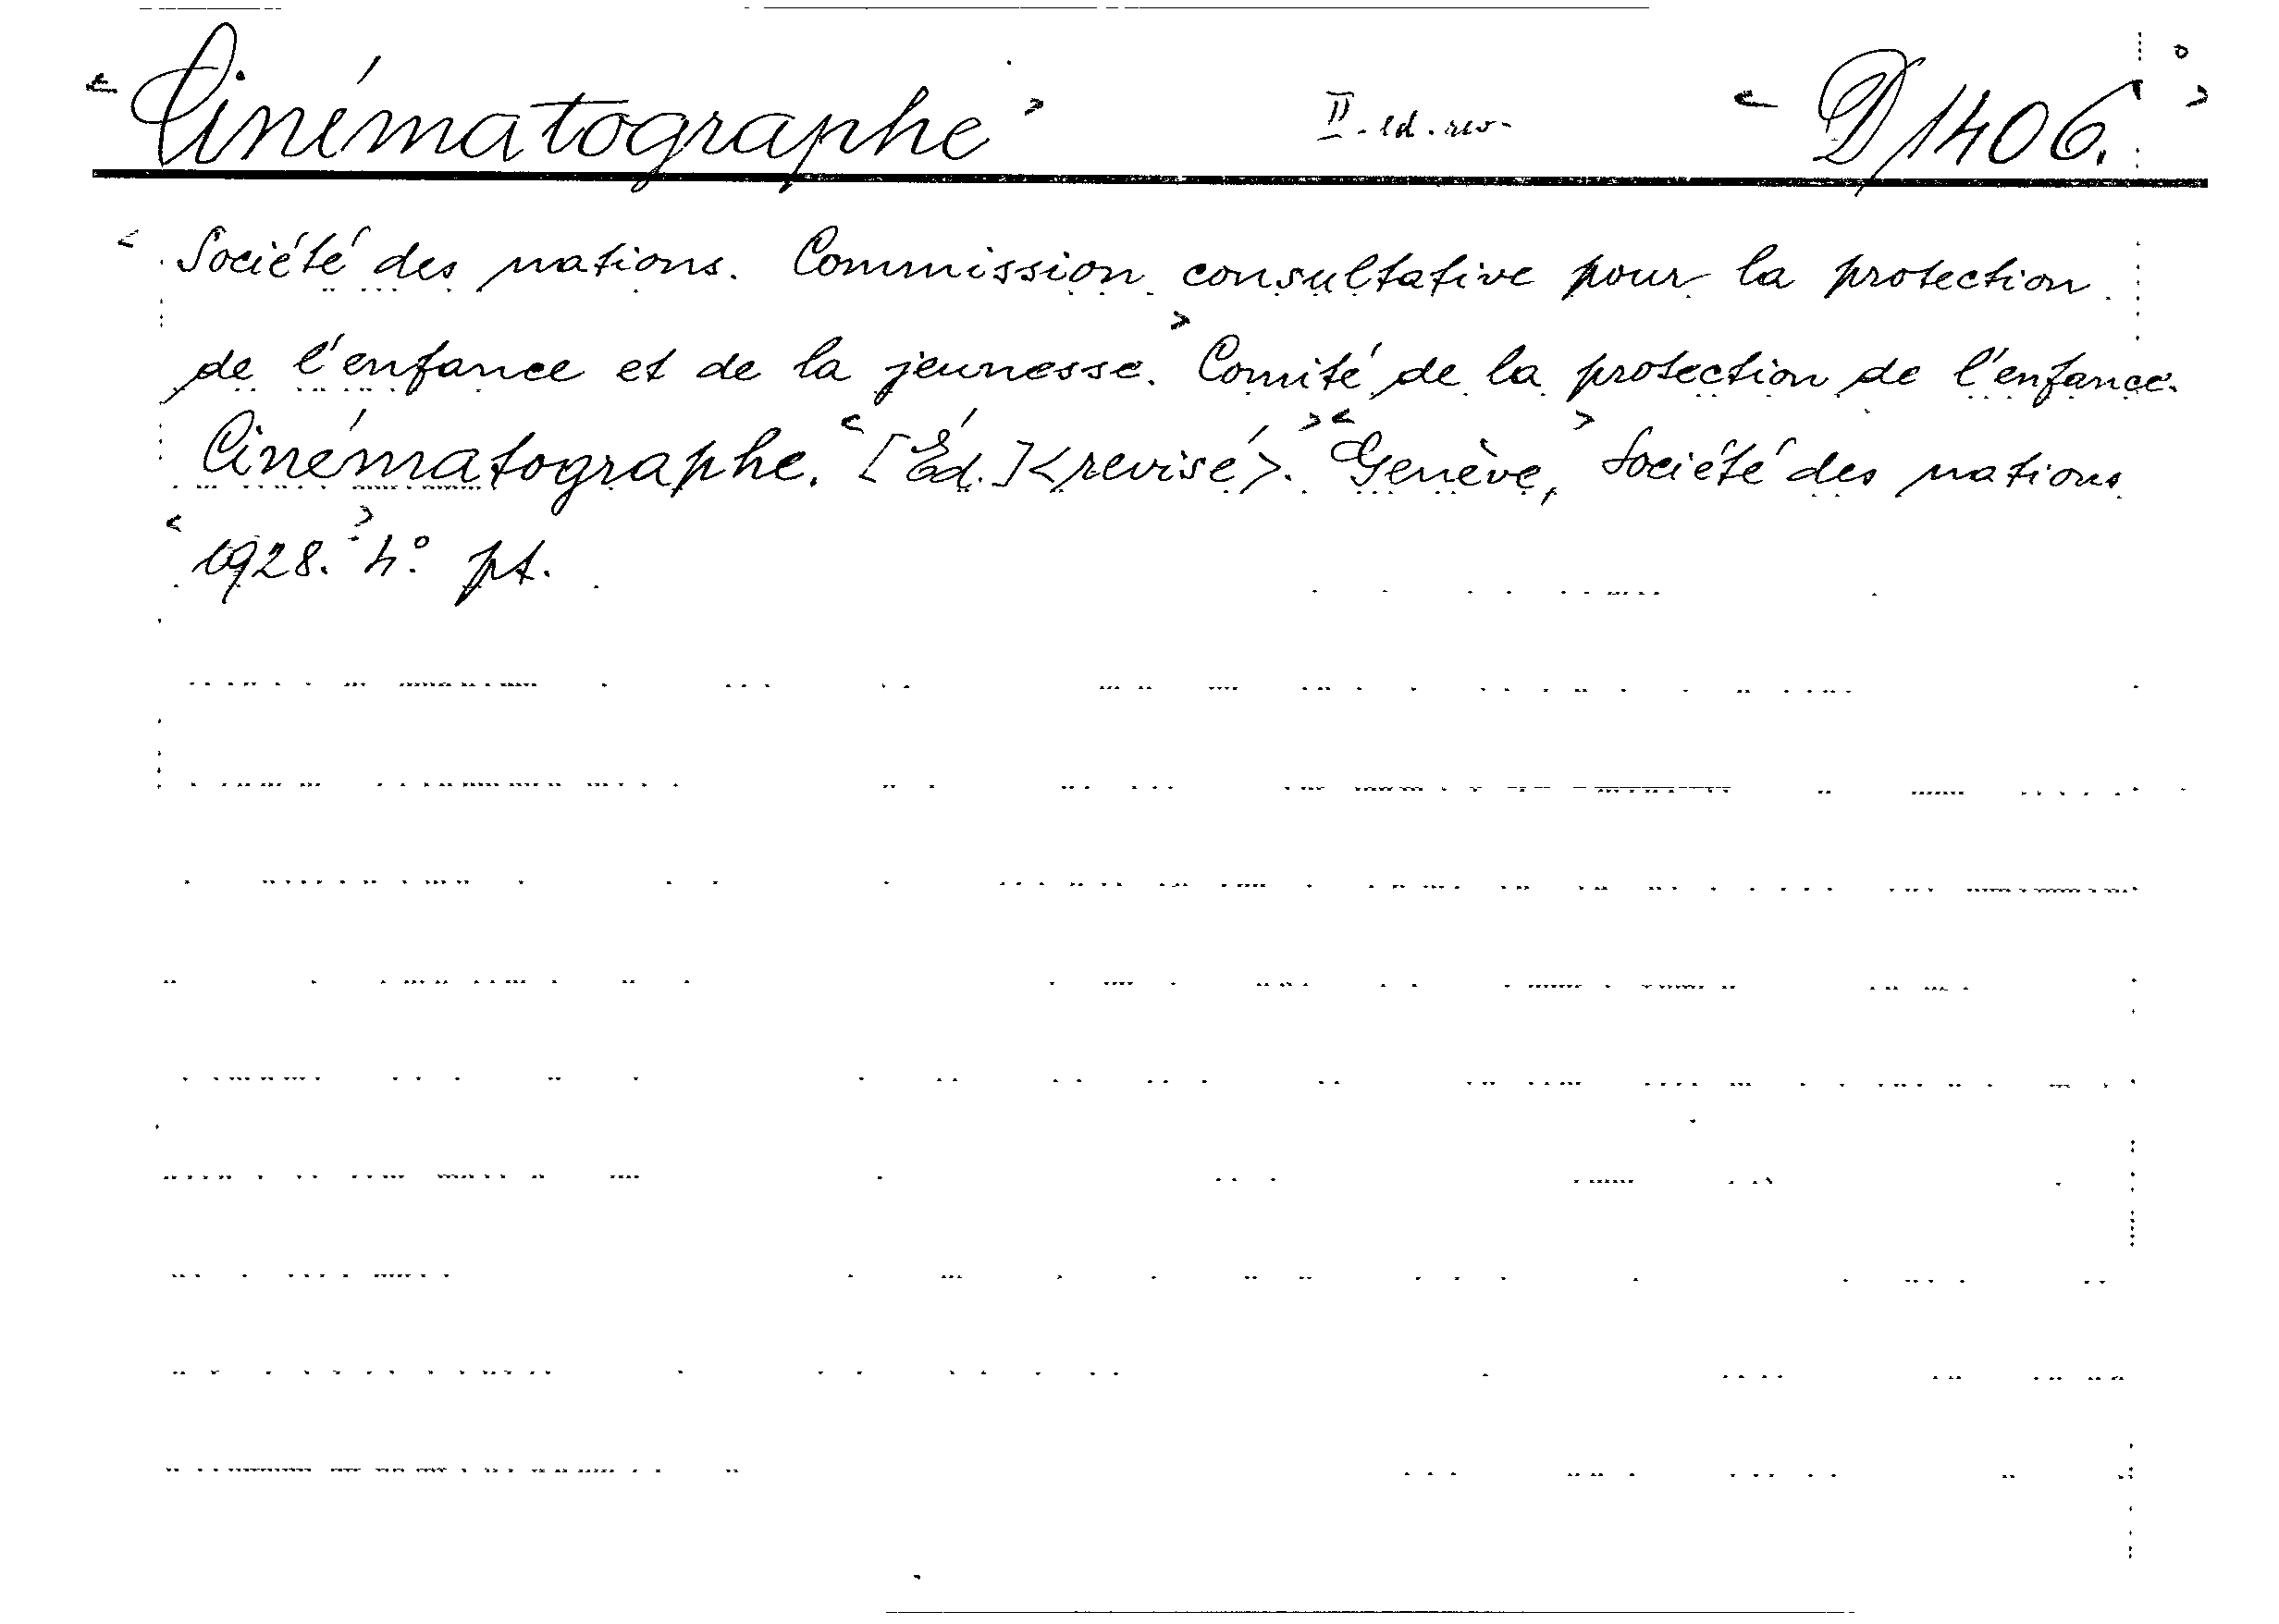 < Cinématographe > II. ed. rev. < D 1406. >
< Société des nations. Commission consultative pour la protection
de l'enfance et de la jeunesse. > Comité de la protection de l'enfance.
Cinématographe. < [Éd.] <revisé>. > < Genève, > Société des nations
< 1928. > 4° pt.